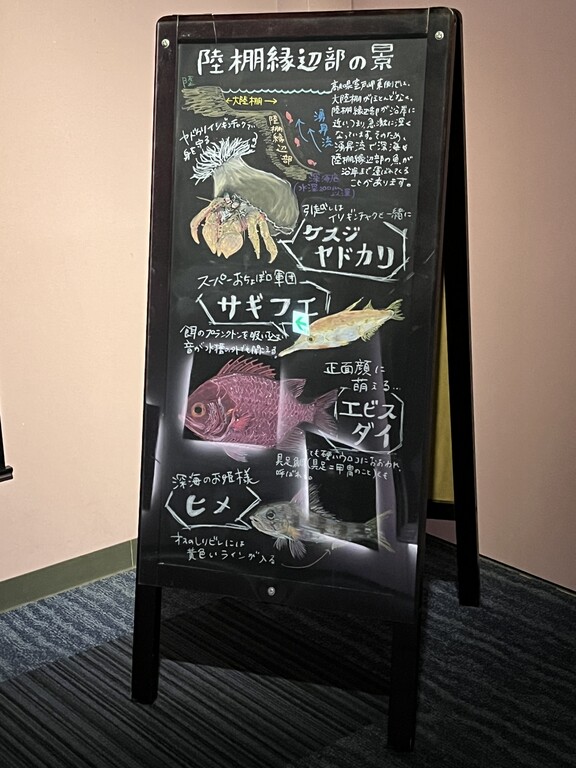 陸棚縁辺部の景
陸
←大陸棚→
陸棚縁辺部
湧昇流
深海底
(水深200m以深)
高知県室戸岬東側では、
大陸棚がほとんどなく、
陸棚縁辺部が沿岸に
近いつまり急激に深く
なっています。そのため、
湧昇流で深海や
陸棚縁辺部の魚が
沿岸まで運ばれてくる
ことがあります。
ヤドカリはイソギンチャクで
身を守る
引越しは
イソギンチャクと一緒に
ケスジ
ヤドカリ
スーパーおちょぼ口軍団
サギフエ
餌のプランクトンを吸い込む
音が水槽の外でも聞こえる!
正面顔に
萌える…
エビス
ダイ
とても硬いウロコにおおわれ
具足(具足=甲冑のこと)とも
呼ばれる。
深海のお姫様
ヒメ
オスのしりビレには
黄色いラインが入る